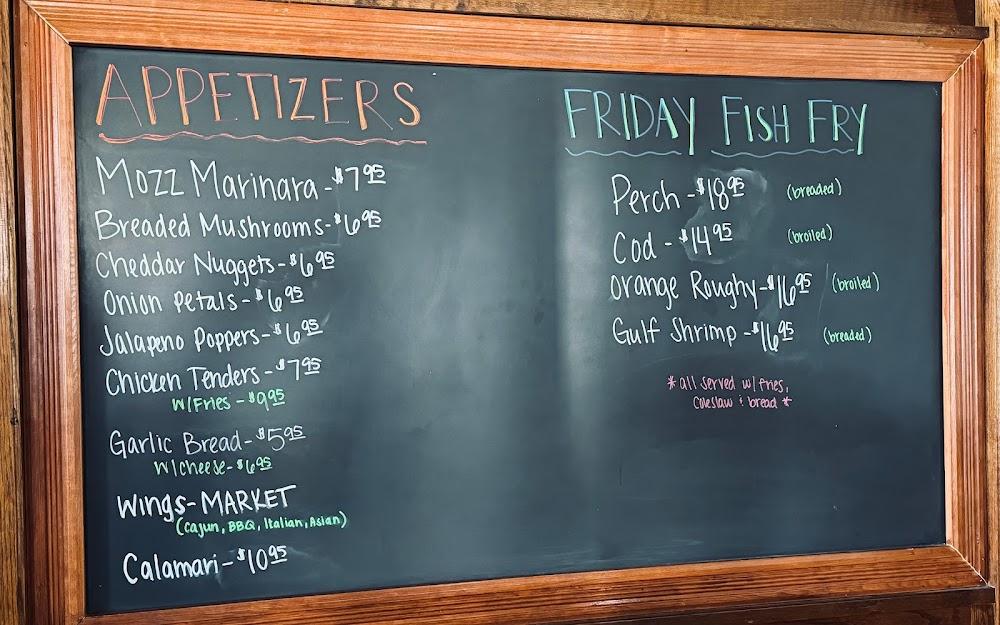 APPETIZERS
Mozz Marinara - $7.95
Breaded Mushrooms - $6.95
Cheddar Nuggets - $6.95
Onion Petals - $6.95
Jalapeno Poppers - $6.95
Chicken Tenders - $7.95
W/Fries - $9.95
Garlic Bread - $5.95
W/cheese - $6.95
Wings - MARKET
(Cajun, BBQ, Italian, Asian)
Calamari - $10.95
FRIDAY FISH FRY
Perch - $18.95 (breaded)
Cod - $14.95 (broiled)
Orange Roughy - $16.95 (broiled)
Gulf Shrimp - $16.95 (breaded)
* all served w/ fries,
coleslaw & bread *